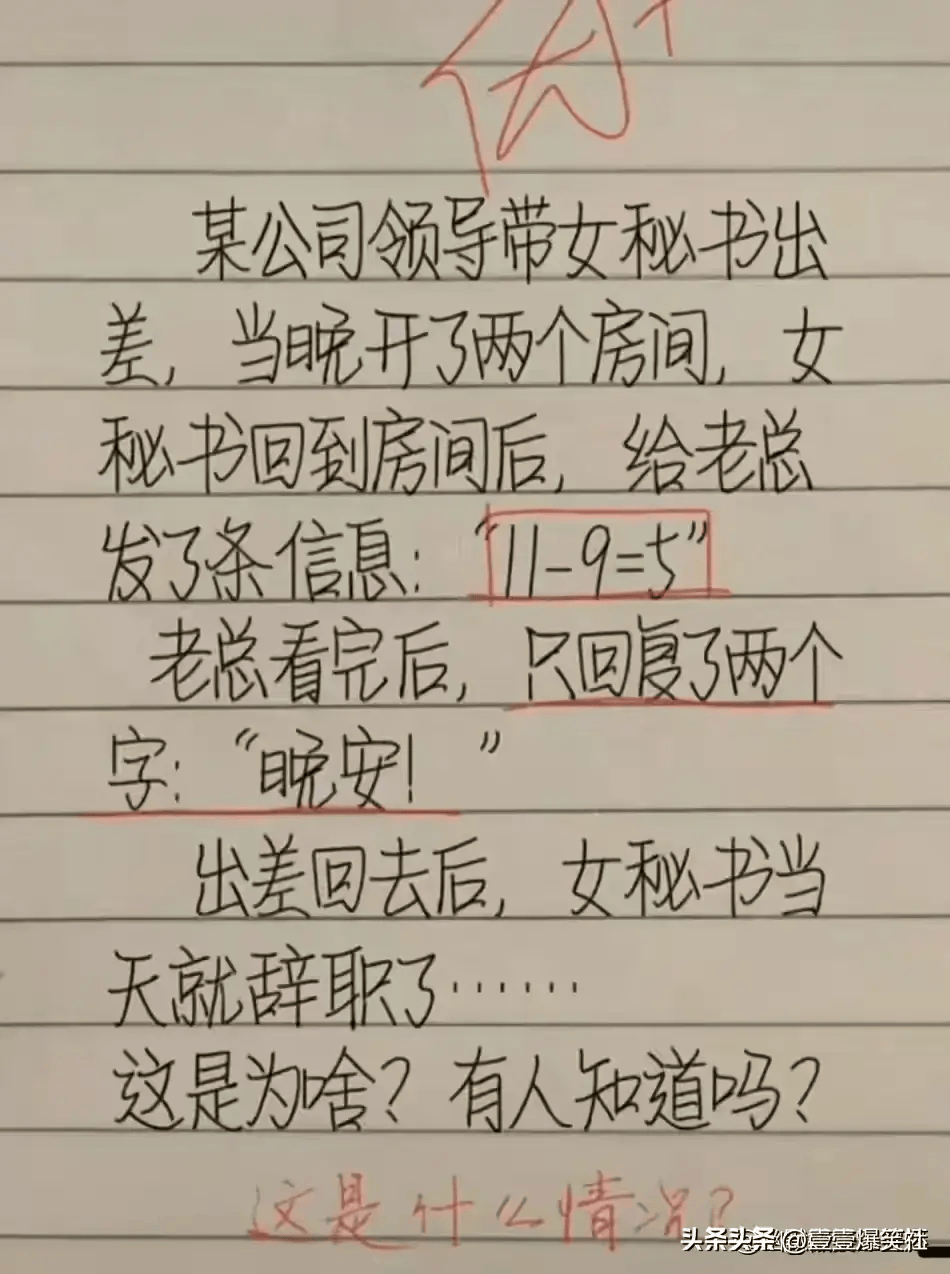 某公司领导带女秘书出
差,当晚开了两个房间,女
秘书回到房间后,给老总
发了条信息:“11-9=5”
老总看完后,只回复了两个
字:“晚安!”
出差回去后,女秘书当
天就辞职了……
这是为啥?有人知道吗?
这是什么情况?
头条头条 @壹壹爆笑娃